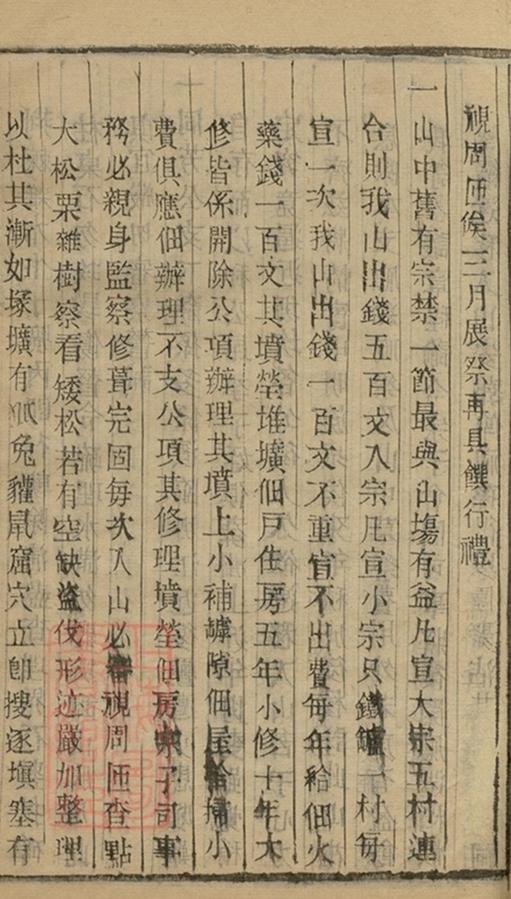 視周匝俟三月展祭再具饌行禮
一山中舊有宗禁一節最與山塲有益凡宣大宗五村連
合則我山出錢五百文入宗凡宣小宗只鐵鑪一村每
宣一次我山出錢一百文不重宣不出費每年給佃火
藥錢一百文其墳塋堆壙佃戶住房五年小修十年大
修皆係開除公項辦理其墳上小補罅隙佃屋 掃小
費俱應佃辦理不支公項其修理墳塋佃房 子司事
務必親身監察修葺完固每次入山必 視周匝查點
大松栗雜樹察看矮松若有空缺盜伐形迹嚴加整理
以杜其漸如塚壙有狐兔貛鼠窟穴立卽搜逐塡塞有